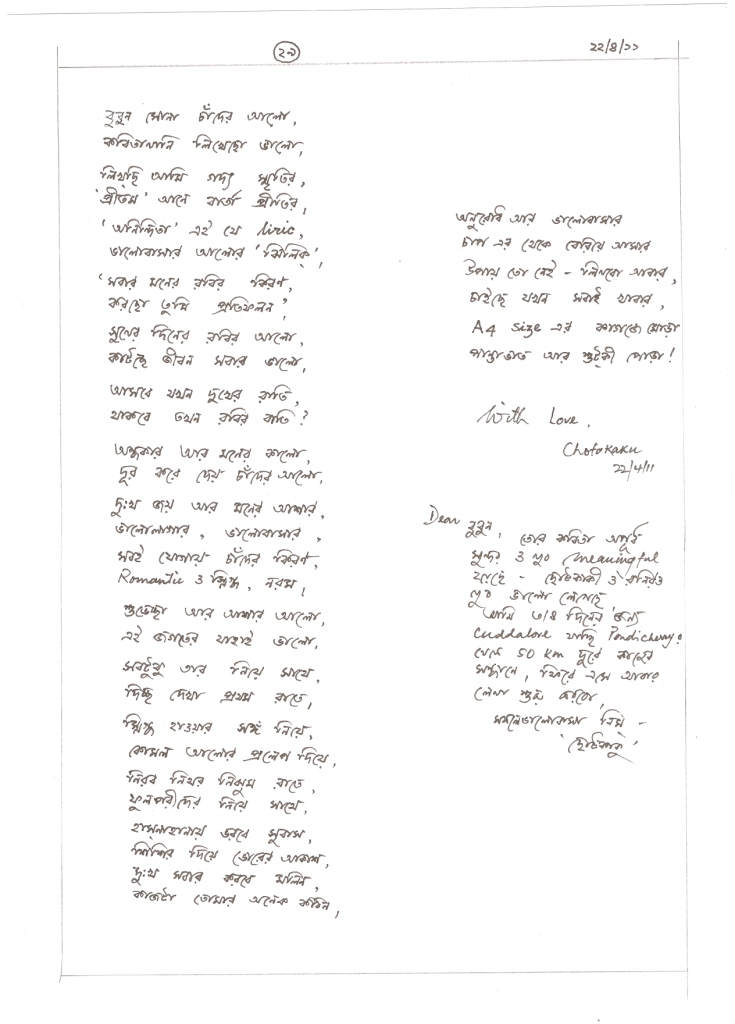 ২৯
২২/৪/১১
বুবুন সোনা চাঁদের আলো,
কবিতাখানি লিখেছো ভালো,
লিখছি আমি গদ্য স্মৃতির,
'প্রীতম' আনে বার্তা প্রীতির,
'অনিন্দিতা' এই যে liric,
ভালোবাসার আলোর 'ঝিলিক',
'সবার মনের রবির কিরণ,
করছো তুমি প্রতিফলন',
সুখের দিনের রবির আলো,
কাটছে জীবন সবার ভালো,
আসবে যখন দুখের রাতি,
থাকবে তখন রবির বাতি?
অন্ধকার আর মনের কালো,
দূর করে দেয় চাঁদের আলো,
দুঃখ জয় আর মনের আশার,
ভালোলাগার, ভালোবাসার,
সবই যোগায় চাঁদের কিরণ,
Romantic ও স্নিগ্ধ, নরম,
শুভেচ্ছা আর আশার আলো,
এই জগতের যাহাই ভালো,
সবটুকু তার নিয়ে সাথে,
দিচ্ছ দেখা প্রথম রাতে,
স্নিগ্ধ হাওয়ার সঙ্গ নিয়ে,
কোমল আলোর প্রলেপ দিয়ে,
নিরব নিথর নিঝুম রাতে,
ফুলপরীদের নিয়ে সাথে,
হাসনাহানায় ভরবে সুবাস,
শিশির দিয়ে ভোরের আকাশ,
দুঃখ সবার করবে মলিন,
কাজটা তোমার অনেক কঠিন,
অনুরোধ আর ভালোবাসার
চাপ এর থেকে বেরিয়ে আসার
উপায় তো নেই - লিখবো আবার,
চাইছে যখন সবাই খাবার,
A4 size এর কাগজে মোড়া
পান্তাভাত আর শুঁটকী পোড়া!
With Love,
Chotokaku
22/4/11
Dear বুবুন,
তোর কবিতা অপূর্ব
সুন্দর ও খুব meaningful
হয়েছে - ছোটকাকী ও রানিরও
খুব ভালো লেগেছে
আমি ৩/৪ দিনের জন্য
Cuddalore যাচ্ছি Pondicherry
থেকে 50 km দূরে কাজের
সন্ধানে, ফিরে এসে আবার
লেখা শুরু করবো,
সকলে ভালোবাসা নিস্ -
'ছোটকাকু'